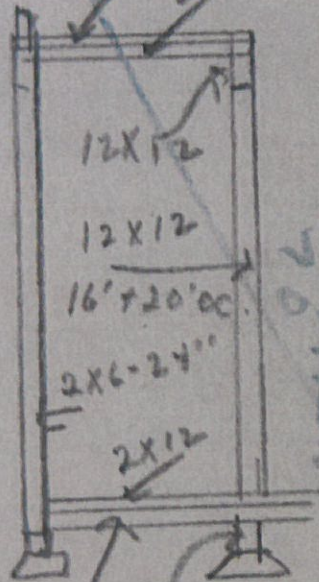 12X12
12X12
16'+20'OC.
2X6-24"
2X12